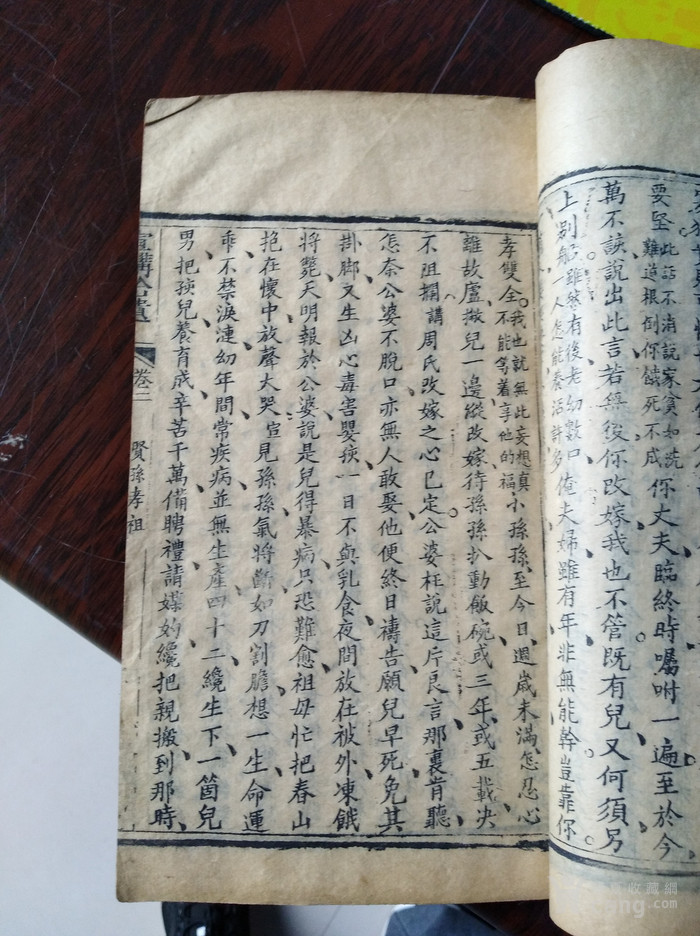 要堅此話不消說家貧如洗難道根倒你餓死不成你丈夫臨終時囑咐一遍至於今
萬不該說出此言若無後你改嫁我也不管既有兒又何須另
上別船雖然有後老幼數口一人怎能養活許多俺夫婦雖有年非無能幹豈靠你
孝雙全我也就無此妄想真不能等着享他的福小孫孫至今日週歲未滿怎忍心
離故廬撇兒一邊縱改嫁待孫孫扒動飯碗或三年或五載決
不阻攔講周氏改嫁之心已定公婆枉說這片良言那裏肯聽
怎奈公婆不脫口亦無人敢娶他便終日禱告願兒早死免其
掛脚又生凶心毒害嬰孩一日不與乳食夜間放在被外凍餓
將斃天明報於公婆說是兒得暴病只恐難愈祖母忙把春山
抱在懷中放聲大哭宣見孫孫氣將斷如刀割膽想一生命運
乖不禁淚漣幼年間常疾病並無生產四十二纔生下一箇兒
男把孩兒養育成辛苦千萬備聘禮請媒妁纔把親搬到那時
宣講合遺 卷二 賢孫孝祖